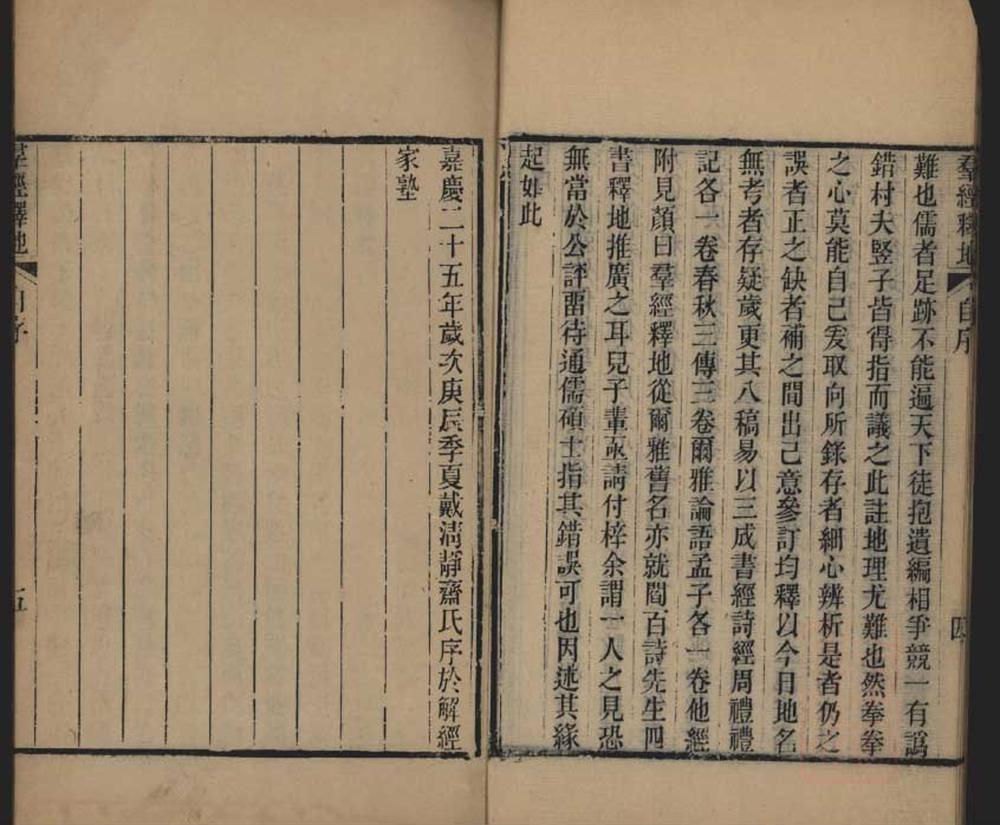 羣經釋地 自序 四
難也儒者足跡不能遍天下徒抱遺編相爭競一有譌
錯村夫豎子皆得指而議之此註地理尤難也然拳拳
之心莫能自己爰取向所錄存者細心辨析是者仍之
誤者正之缺者補之間出己意參訂均釋以今日地名
無考者存疑歲更其八稿易以三成書經詩經周禮禮
記各一卷春秋三傳三卷爾雅論語孟子各一卷他經
附見顏曰羣經釋地從爾雅舊名亦就閻百詩先生四
書釋地推廣之耳兒子輩亟請付梓余謂一人之見恐
無當於公評畱待通儒碩士指其錯誤可也因述其緣
起如此
嘉慶二十五年歲次庚辰季夏戴清靜齋氏序於解經
家塾
羣經釋地 自序 五